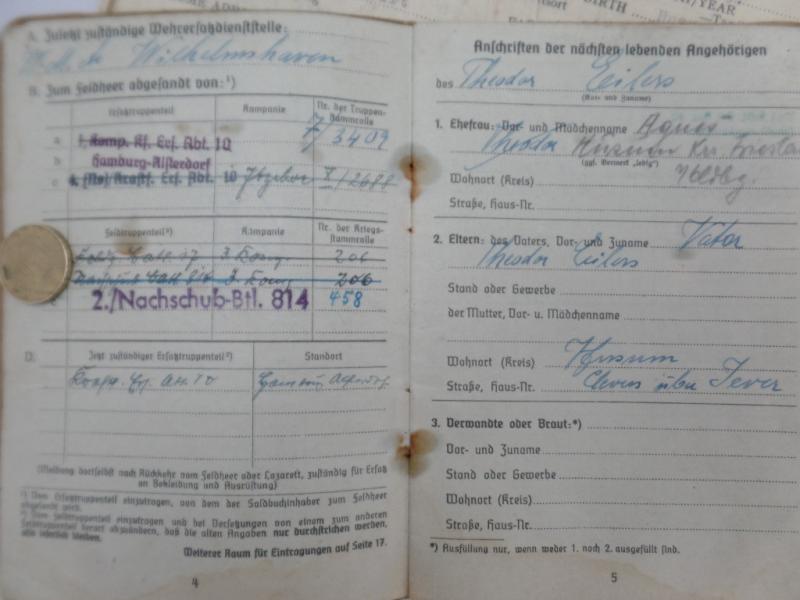 BIRTH
YEAR
A. Zuletzt zuständige Wehrersatzdienststelle:
Wilhelmshaven
B. Zum Feldheer abgesandt von:¹)
Ersatztruppenteil
Kompanie
Nr. der Truppen-
stammrolle
a
1. Komp. Kf. Ers. Abt. 10
7/3409
b
Hamburg-Alsterdorf
c
Kraftf. Ers. Abt. 10
Feldtruppenteil²)
Kompanie
Nr. der Kriegs-
stammrolle
3. Komp.
206
3. Komp.
206
2./Nachschub-Btl. 814
458
D.
Jetzt zuständiger Ersatztruppenteil²)
Standort
(Meldung dortselbst nach Rückkehr vom Feldheer oder Lazarett, zuständig für Ersatz
an Bekleidung und Ausrüstung)
¹) Vom Ersatztruppenteil einzutragen, von dem der Soldbuchinhaber zum Feldheer
abgesandt wird.
²) Vom Feldtruppenteil einzutragen und bei Versetzungen von einem zum anderen
Feldtruppenteil derart abzuändern, daß die alten Angaben nur durchstrichen werden,
also leserlich bleiben.
Weiterer Raum für Eintragungen auf Seite 17.
4
Anschriften der nächsten lebenden Angehörigen
des Theodor Eilers
(Vor- und Zuname)
1. Ehefrau: Vor- und Mädchenname Agnes
Theodor Husum Krs Friesland
(ggf. Vermerk „ledig")
Wohnort (Kreis)
Straße, Haus-Nr.
2. Eltern: des Vaters, Vor- und Zuname Vater
Theodor Eilers
Stand oder Gewerbe
der Mutter, Vor- u. Mädchenname
Wohnort (Kreis) Husum
Straße, Haus-Nr. Clevens über Jever
3. Verwandte oder Braut:*)
Vor- und Zuname
Stand oder Gewerbe
Wohnort (Kreis)
Straße, Haus-Nr.
*) Ausfüllung nur, wenn weder 1. noch 2. ausgefüllt sind.
5